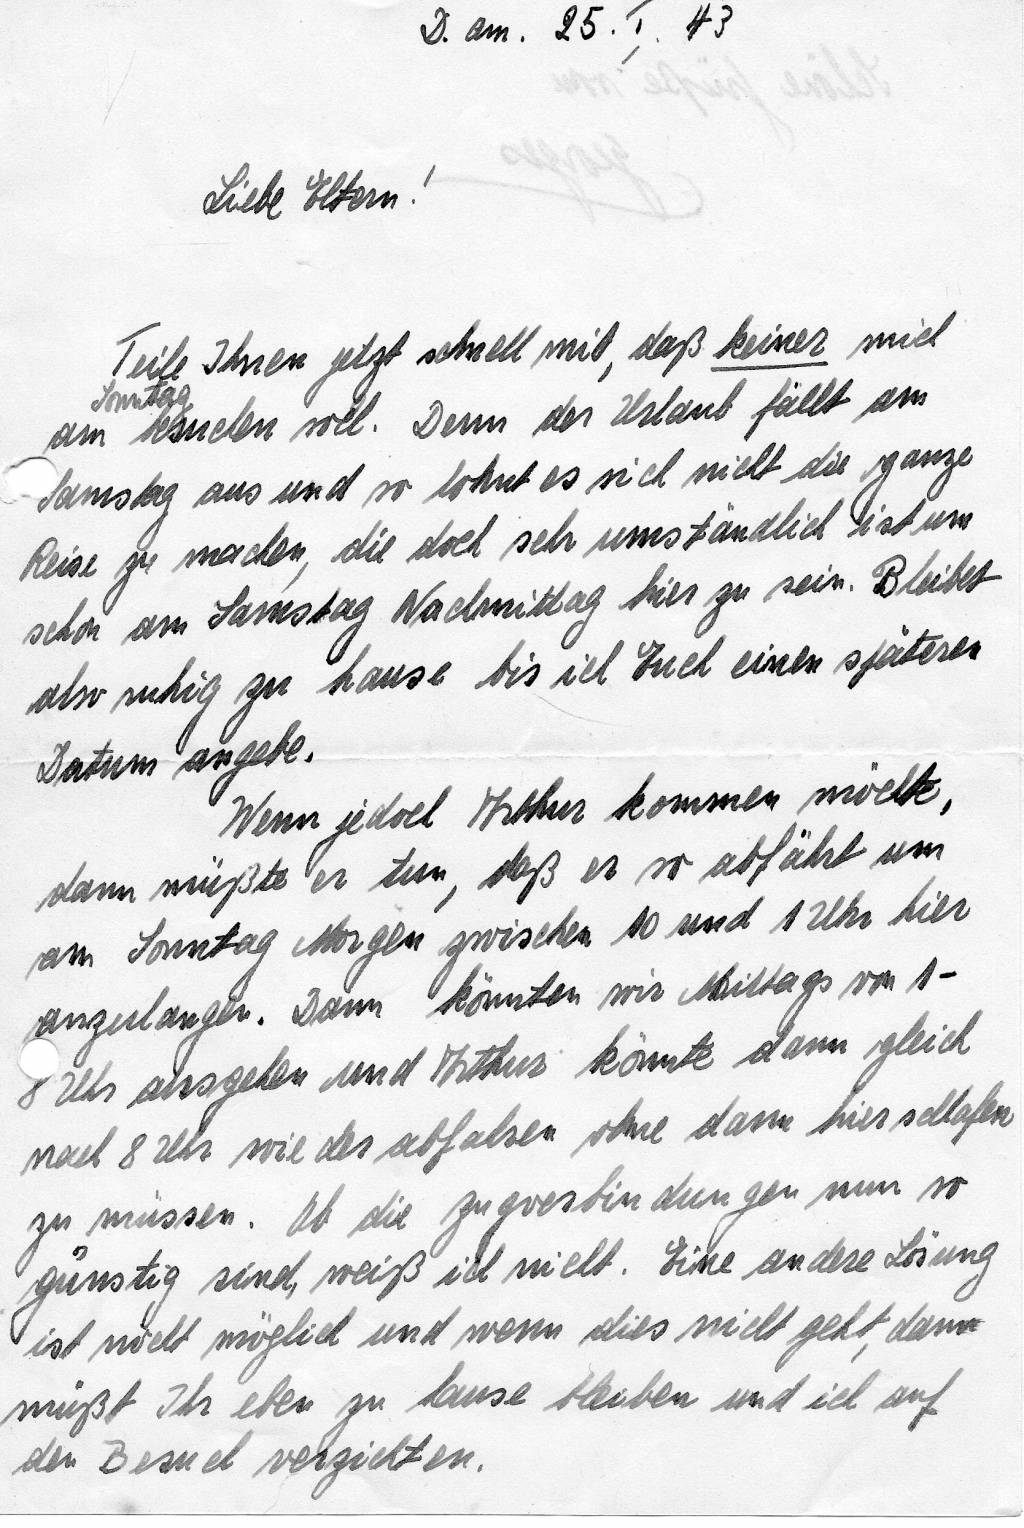 D. am. 25. I. 43
Liebe Eltern!
Teile Ihnen jetzt schnell mit, daß keiner mich
Sonntag
am besuchen soll. Denn der Urlaub fällt am
Samstag aus und so lohnt es sich nicht die ganze
Reise zu machen, die doch sehr umständlich ist um
schon am Samstag Nachmittag hier zu sein. Bleibet
also ruhig zu hause bis ich Euch einen späteren
Datum angebe.
Wenn jedoch Arthur kommen möchte,
dann müßte er tun, daß er so abfährt um
am Sonntag Morgen zwischen 10 und 1 Uhr hier
anzulangen. Dann könnten wir Mittags von 1-
8 Uhr ausgehen und Arthur könnte dann gleich
nach 8 Uhr wieder abfahren ohne dann hier schlafen
zu müssen. Ob die Zugverbindungen nun so
günstig sind, weiß ich nicht. Eine andere Lösung
ist nicht möglich und wenn dies nicht geht, dann
müßt Ihr eben zu hause bleiben und ich auf
den Besuch verzichten.
Schöne Grüße von
Georges